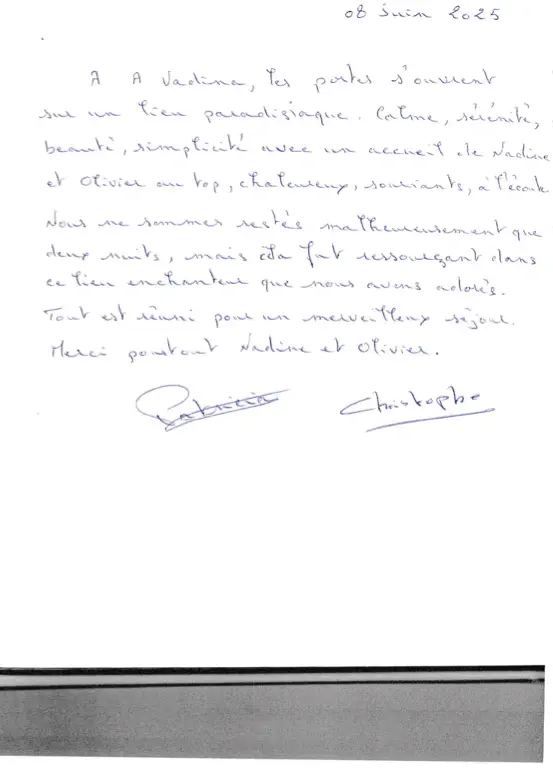 08 Juin 2025
A A Vadina, les portes s'ouvrent
sur un lieu paradisiaque. Calme, sérénité,
beauté, simplicité avec un accueil de Nadine
et Olivier au top, chaleureux, souriants, à l'écoute
Nous ne sommes restés malheureusement que
deux nuits, mais cela fut ressourçant dans
ce lieu enchanteur que nous avons adorés.
Tout est réuni pour un merveilleux séjour.
Merci pourtout Nadine et Olivier.
Patricia Christophe